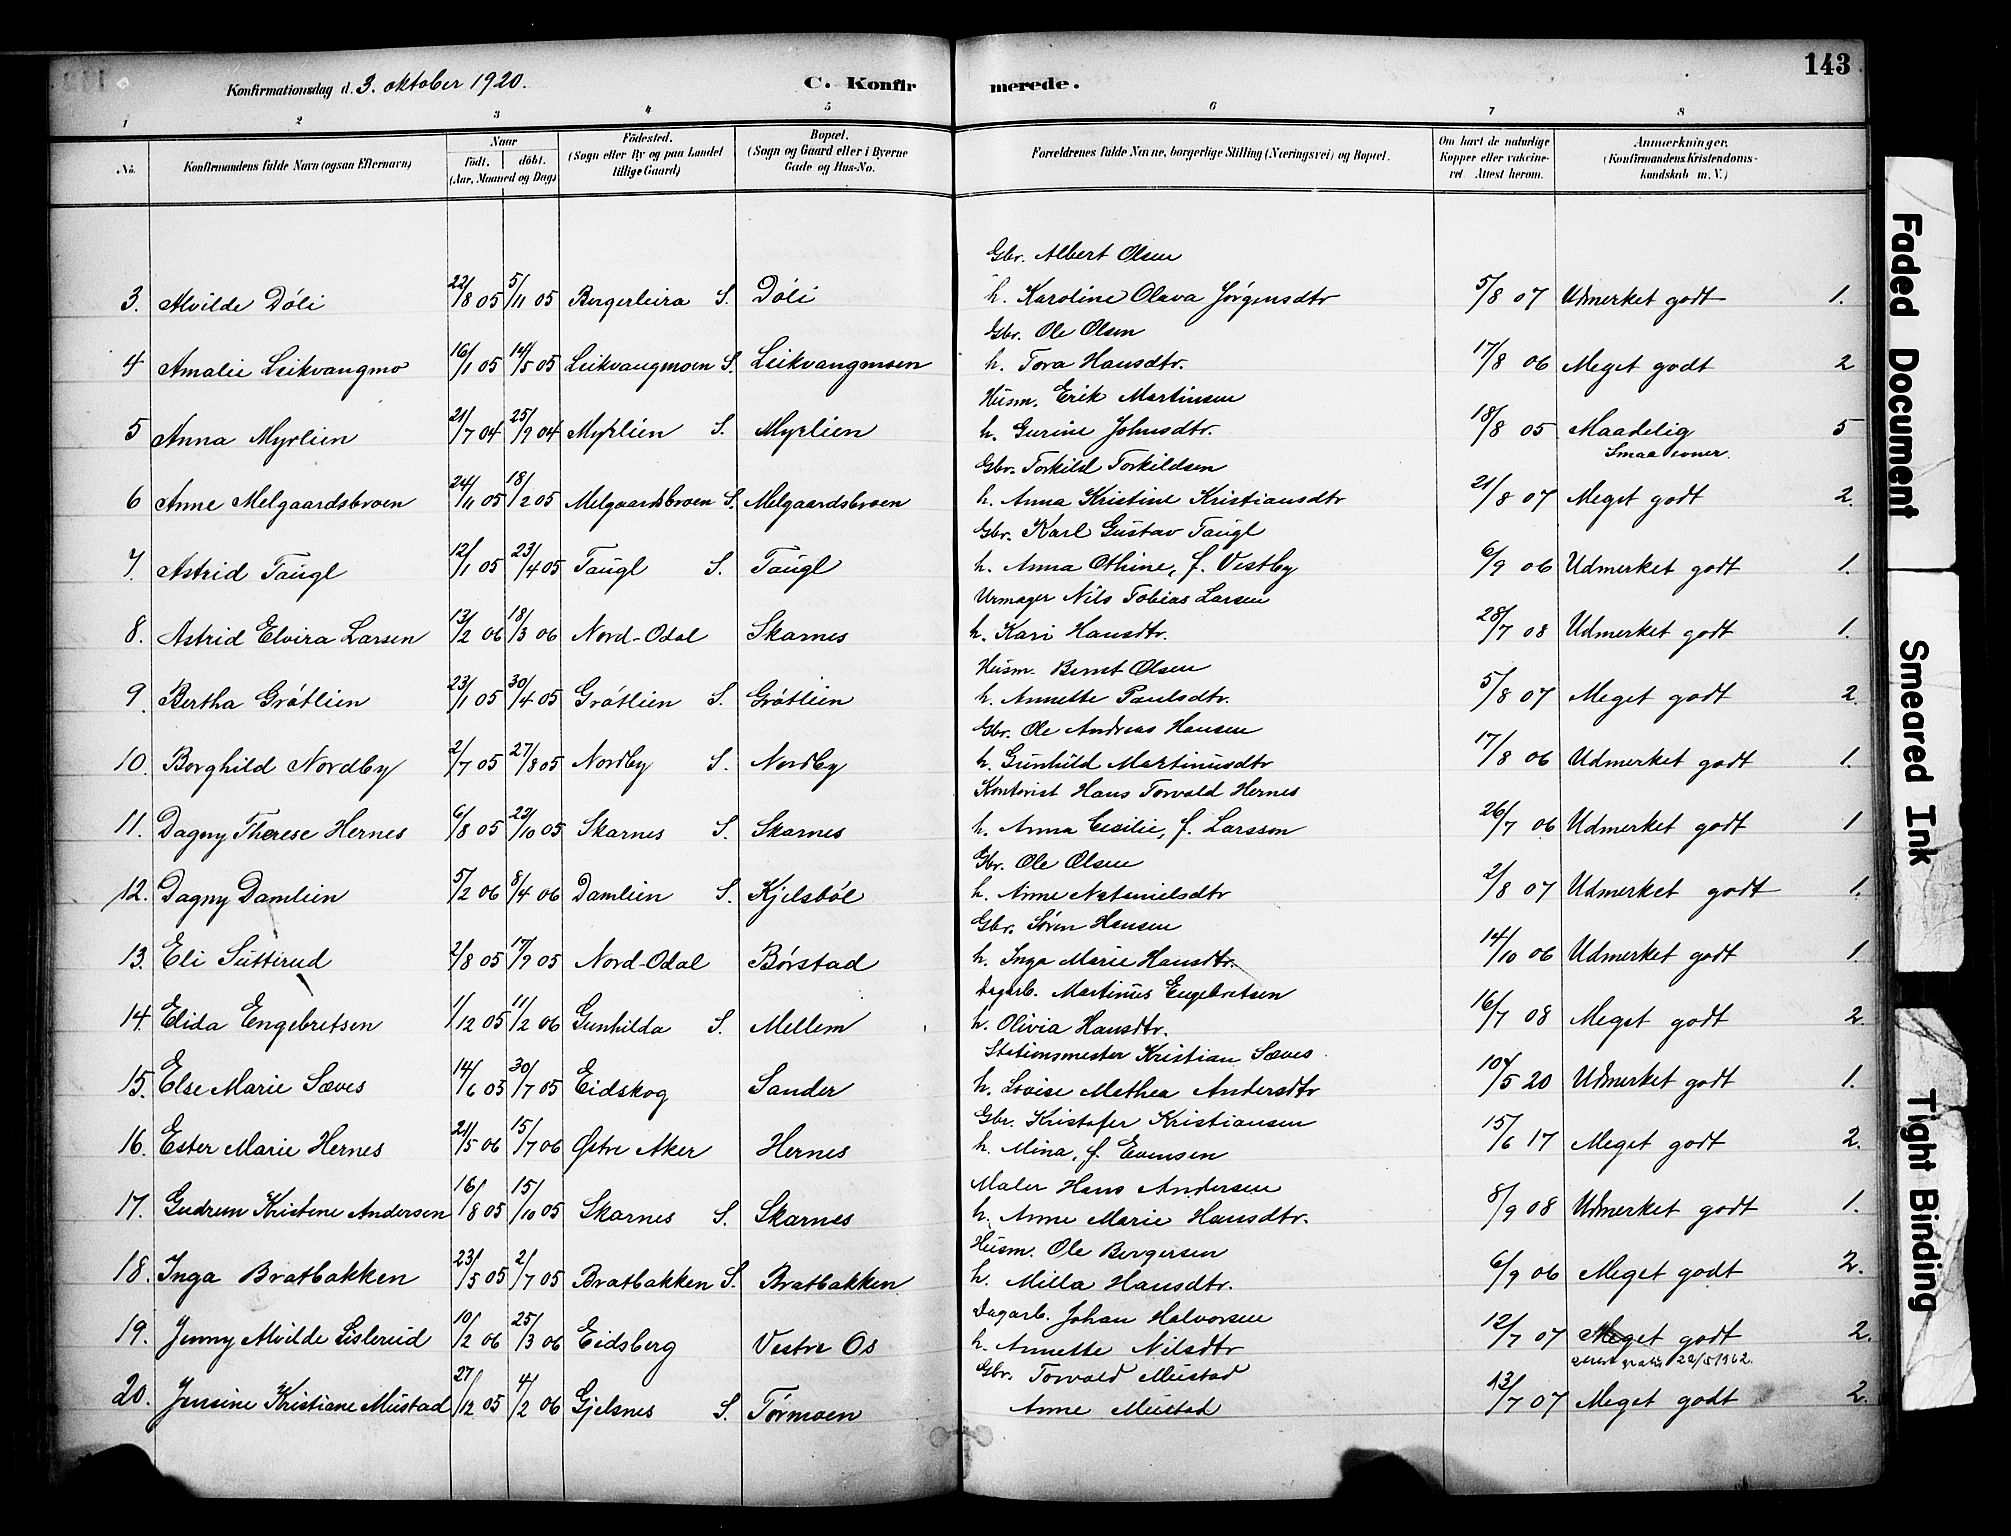 143
Konfirmationsdag d. 3. oktober 1920.
C. Konfirmerede.
1 2 3 4 5 6 7 8
No.
Konfirmandens fulde Navn (ogsaa Efternavn)
Naar
födt. döbt.
(Aar, Maaned og Dag)
Födested.
(Sogn eller By og paa Landet
tillige Gaard)
Bopæl.
(Sogn og Gaard eller i Byerne
Gade og Hus-No.
Forældrenes fulde Navne, borgerlige Stilling (Næringsvei) og Bopæl.
Om havt de naturlige
Kopper eller vakcine-
ret. Attest herom.
Anmærkninger.
(Konfirmandens Kristendoms-
kundskab m. V.)
Gbr. Albert Olsen
3. Alvilde Döli 22/8 05 5/11 05 Bergerleira S. Döli h. Karoline Olava Jørgensdtr 5/8 07 Udmerket godt 1.
Gbr. Ole Olsen
4 Amalie Leikvangmo 16/1 05 14/5 05 Leikvangmoen S. Leikvangmoen h. Tora Hansdtr. 17/8 06 Meget godt 2
Husm. Erik Martinsen
5 Anna Myrlien 21/7 04 25/9 04 Myrlien S. Myrlien h. Gurine Johnsdtr. 18/8 05 Maadelig 5
Smaa evner.
Gbr. Torkild Torkildsen
6 Anne Melgaardsbroen 24/11 05 18/2 05 Melgaardsbroen S. Melgaardsbroen h. Anna Kristine Kristiansdtr 21/8 07 Meget godt 2.
Gbr. Karl Gustav Taugl
7. Astrid Taugl 12/1 05 23/4 05 Taugl S. Taugl h. Anna Othine, f. Vestby 6/9 06 Udmerket godt 1.
Urmager Nils Tobias Larsen
8. Astrid Elvira Larsen 13/2 06 18/3 06 Nord-Odal Skarnes h. Kari Hansdtr. 28/7 08 Udmerket godt 1.
Husm. Bernt Olsen
9. Bertha Grötlien 23/1 05 30/4 05 Grötlien S. Grötlien h. Annette Paulsdtr. 5/8 07 Meget godt 2.
Gbr. Ole Andreas Hansen
10. Borghild Nordby 2/7 05 27/8 05 Nordby S. Nordby h. Gunhild Martinusdtr 17/8 06 Udmerket godt 1.
Kontorist Hans Torvald Hernes
11. Dagny Therese Hernes 6/8 05 22/10 05 Skarnes S. Skarnes h. Anna Cecilie, f. Larsson 26/7 06 Udmerket godt 1
Gbr. Ole Olsen
12. Dagny Damlien 5/2 06 8/4 06 Damlien S. Kjelsböl h. Anne Natanielsdtr 2/8 07 Udmerket godt 1.
Gbr. Søren Hansen
13. Eli Sutterud 2/8 05 17/9 05 Nord-Odal Börstad h. Inga Marie Hansdtr. 14/10 06 Udmerket godt 1.
Dagarb. Martinus Engebretsen
14. Elida Engebretsen 1/12 05 11/2 06 Gunhilda S. Mellem h. Olivia Hansdtr. 16/7 08 Meget godt 2.
Stationsmester Kristian Sæves
15. Else Marie Sæves 14/6 05 30/7 05 Eidskog Sander h. Lovise Mathea Andersdtr 10/5 20 Udmerket godt 1.
Gbr. Kristofer Kristiansen
16. Ester Marie Hernes 21/5 06 15/7 06 Østre Aker Hernes h. Mina, f. Evensen 15/6 17 Meget godt 2.
Maler Hans Andersen
17. Gudrun Kristine Andersen 16/8 05 15/10 05 Skarnes S. Skarnes h. Anne Marie Hansdtr. 8/9 08 Udmerket godt 1.
Husm. Ole Bergersen
18. Inga Bratbakken 23/5 05 2/7 05 Bratbakken S. Bratbakken h. Milla Hansdtr. 6/9 06 Meget godt 2.
Dagarb. Johan Halvorsen
19. Jenny Alvilde Lislerud 10/2 06 25/3 06 Eidsberg Vestre Os h. Annette Nilsdtr 12/7 07 Meget godt 2.
Gbr. Torvald Mustad
20. Jensine Kristiane Mustad 27/12 05 4/2 06 Gjelsnes S. Törmoen Anne Mustad 13/7 07 Meget godt 2.
Faded Document
Smeared Ink
Tight Binding